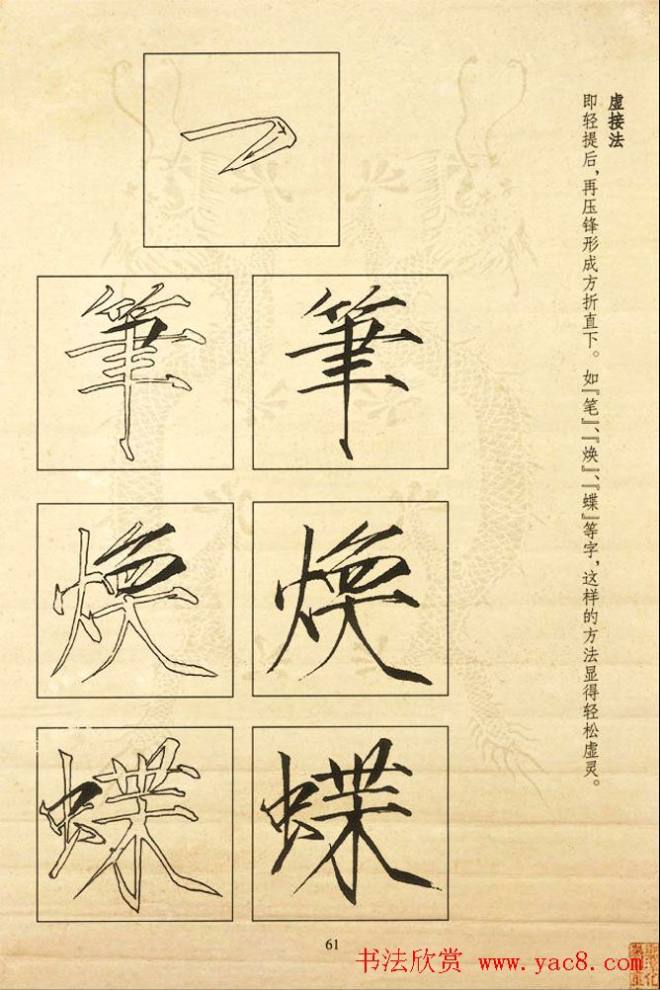 虚接法
即轻提后，再压锋形成方折直下。如『笔』、『焕』、『蝶』等字，这样的方法显得轻松虚灵。
筆 筆
焕 焕
蝶 蝶
61
书法欣赏 www.yac8.com